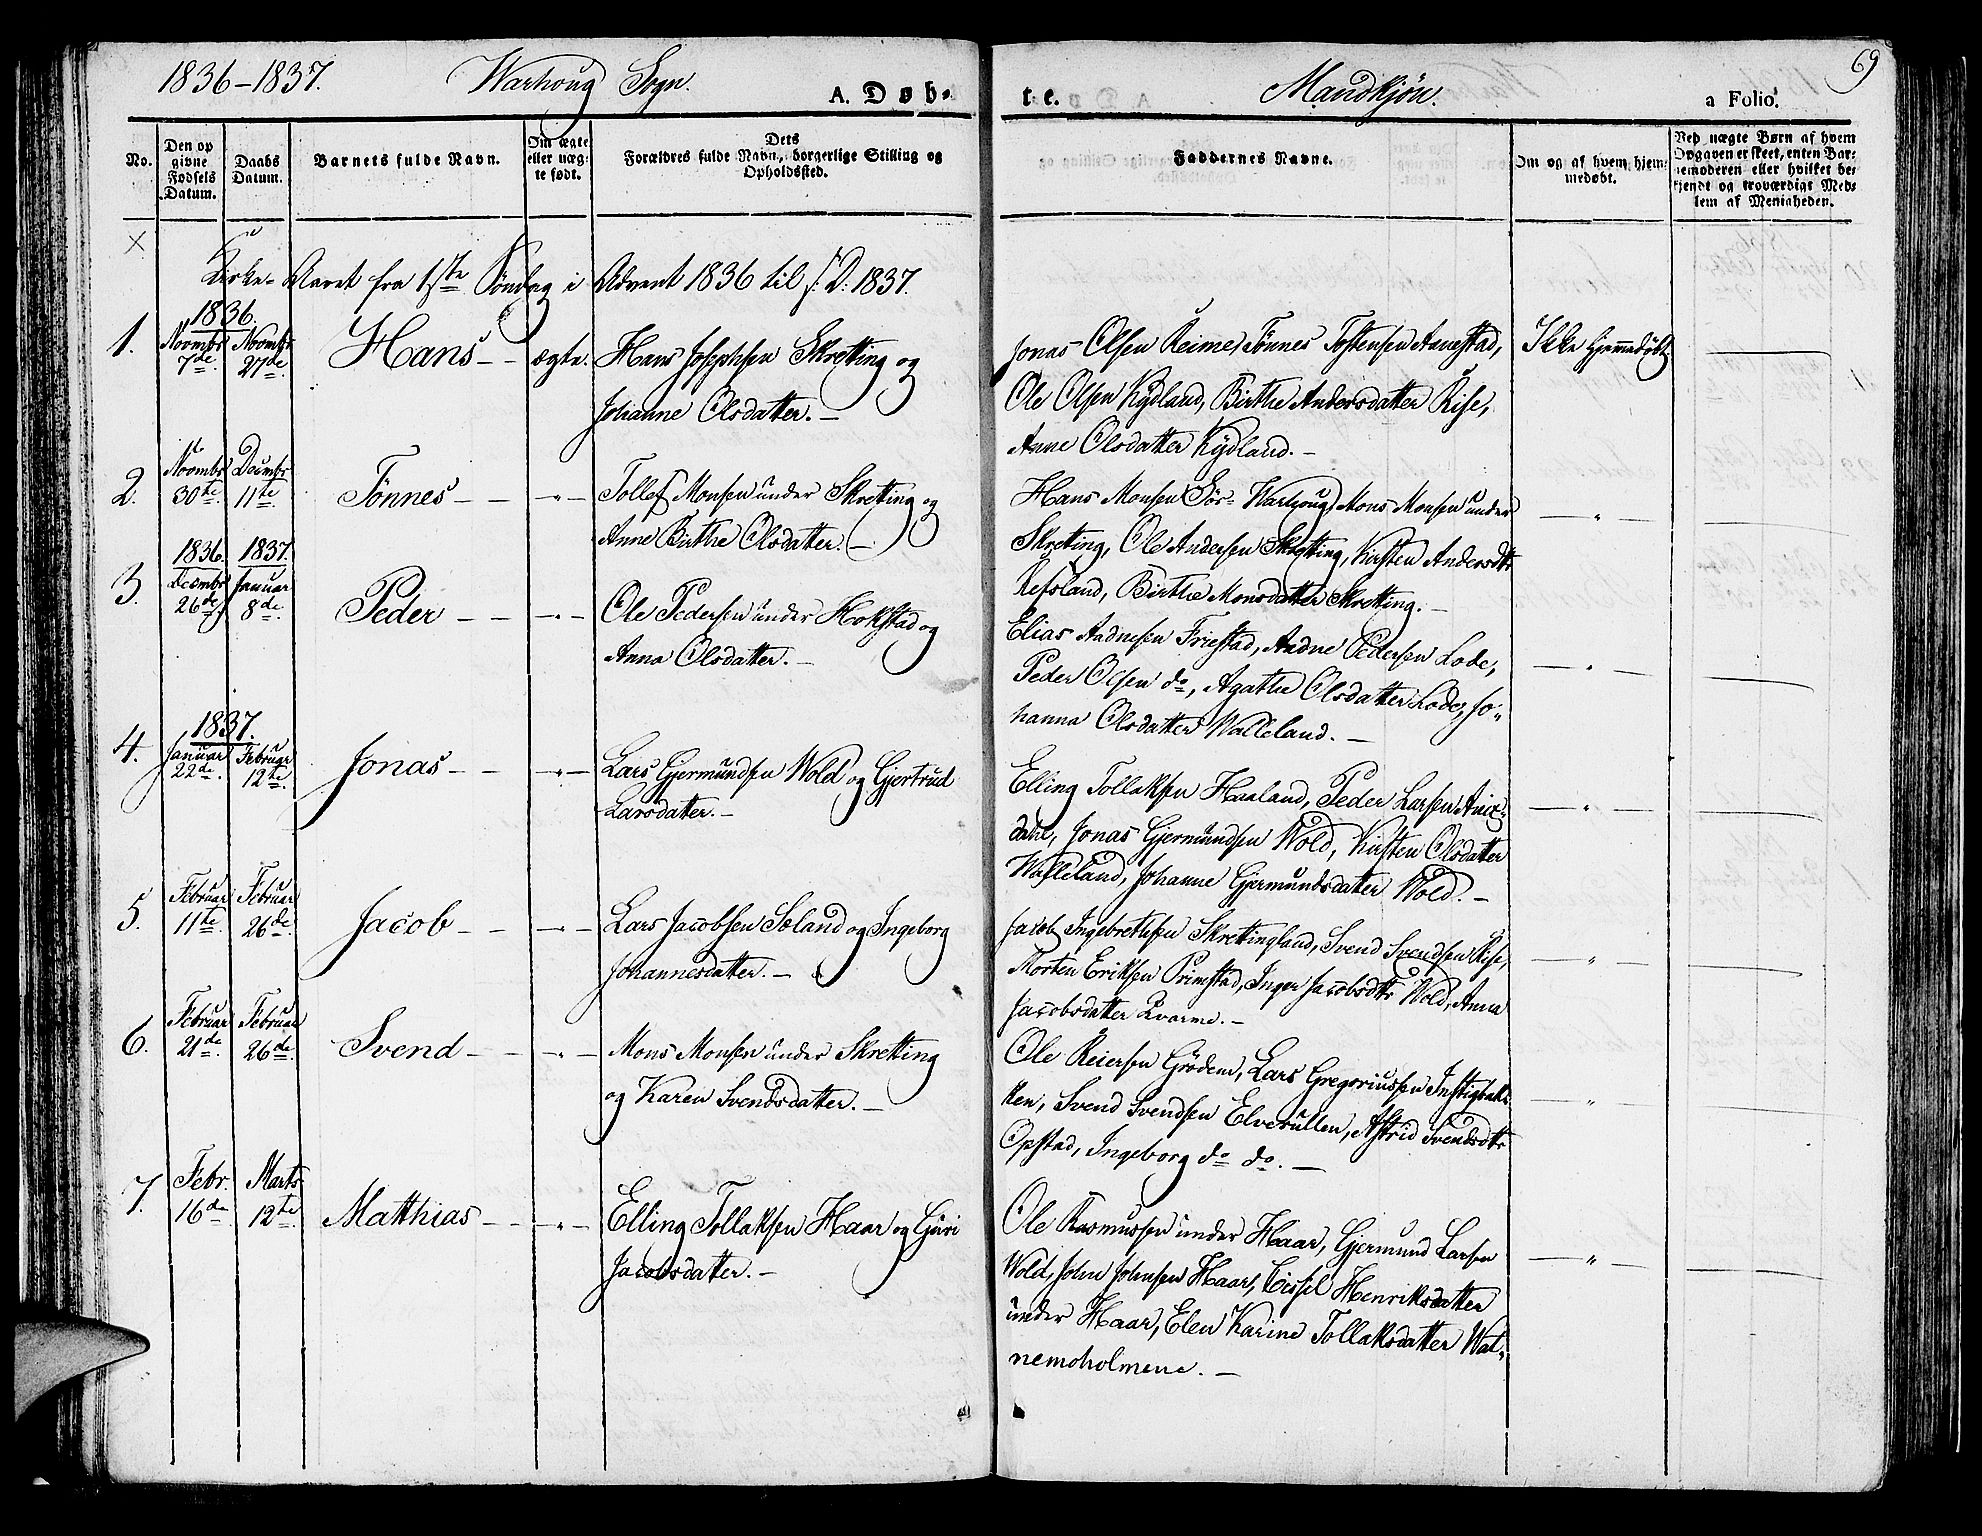 1836-1837. Warhoug Sogn. A. Døb-
te. Mandkjøn. a Folio. 69
No.
Den op
givne
Fødsels
Datum.
Daabs
Datum.
Barnets fulde Navn.
Om ægte
eller uæg-
te født.
Dets
Forældres fulde Navn, borgerlige Stilling og
Opholdssted.
Faddernes Navne.
Om og af hvem hjem-
medøbt.
Ved uægte Børn af hvem
Opgaven er skeet, enten Bar-
nemoderen eller hvilket be-
kjendt og troværdigt Med-
lem af Menigheden.
Kirke-Aaret fra 1ste Søndag i Advent 1836 til s: D: 1837.
1836.
1. Novmbr 7de Novmbr 27de Hans - - ægte. Hans Josephsen Skretting og
Johanne Olsdatter. -
Jonas Olsen Reime, Tønnes Tostensen Aanestad,
Ole Olsen Kydland, Birthe Andersdatter Rise,
Anne Olsdatter Kydland. -
Ikke hjemmedøbt
2. Novmbr 30te Decmbr 11te Tønnes - - -"- Tollef Monsen under Skretting og
Anne Birthe Olsdatter. -
Hans Monsen Sör-Warhoug, Mons Monsen under
Skretting, Ole Andersen Skretting, Kirsten Andersdtr
Refsland, Birthe Monsdatter Skretting. -
-"-
1836. 1837.
3. Decmbr 26de Januar 8de Peder - - -"- Ole Pedersen under Hokstad og
Anna Olsdatter. -
Elias Aadnesen Friestad, Aadne Pedersen Lode,
Peder Olsen do, Agathe Olsdatter Lode, Jo-
hanna Olsdatter Walleland. -
-"-
1837.
4. Januar 22de Februar 12te Jonas - - -"- Lars Gjermundsen Wold og Gjertrud
Larsdatter. -
Elling Tollaksen Haaland, Peder Larsen Anix-
dahl, Jonas Gjermundsen Wold, Kirsten Olsdatter
Walleland, Johanne Gjermundsdatter Wold. -
-"-
5. Februar 11te Februar 26de Jacob - - -"- Lars Jacobsen Söland og Ingeborg
Johannesdatter. -
Jacob Ingebretsen Skrettingland, Svend Svendsen Rise,
Morten Eriksen Primstad, Inger Jacobsdtr Wold, Anna
Jacobsdatter Qvarme. -
-"-
6. Februar 21de Februar 26de Svend - - -"- Mons Monsen under Skretting
og Karen Svendsdatter. -
Ole Reiersen Grödem, Lars Gregoriussen Instigbak-
ken, Svend Svendsen Elverullen, Astrid Svendsdtr
Opstad, Ingeborg do do. -
-"-
7. Febr. 16de Marts 12te Matthias - - -"- Elling Tollaksen Haar og Guri
Jacobsdatter. -
Ole Rasmussen under Haar, Gjermund Larsen
Wold, John Johnsen Haar, Cecsil Henriksdatter
under Haar, Elen Karine Tollaksdatter Wat-
nemoholmene. -
-"-